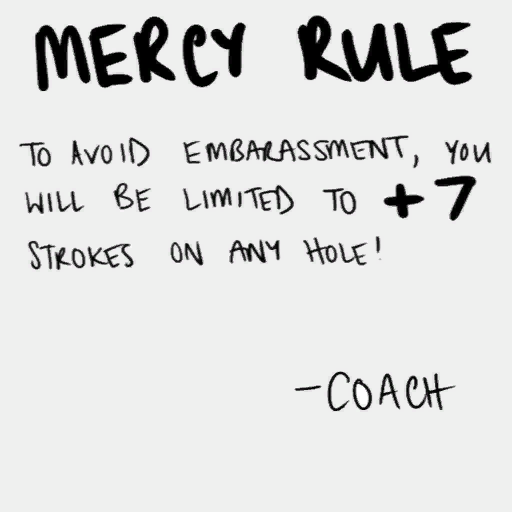 MERCY RULE
TO AVOID EMBARASSMENT, YOU
WILL BE LIMITED TO +7
STROKES ON ANY HOLE!
-COACH